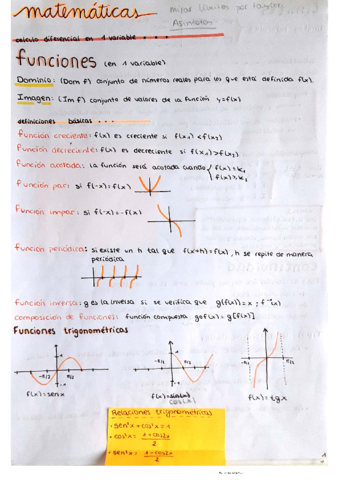 matemáticas
mirar límites por taylor
Asíntotas
calculo diferencial en 1 variable....
funciones (en 1 variable)
Dominio: (Dom f) conjunto de números reales para los que está definida f(x).
Imagen: (Im f) conjunto de valores de la función y=f(x)
definiciones básicas ....
Función creciente: f(x) es creciente si f(x1)<f(x2)
Función decreciente: f(x) es decreciente si f(x1)>f(x2)
Función acotada: la función será acotada cuando
Función par: si f(-x)=f(x)
Función impar: si f(-x)=-f(x)
función periódica: si existe un h tal que f(x+h)=f(x), h se repite de manera
periódica
función inversa: g es la inversa si se verifica que g(f(x))=x; f⁻¹(x)
composición de funciones: función compuesta gof(x)=g[f(x)]
Funciones trigonométricas
-π/2 π/2
-π/2 π/2
-π/2 π/2
f(x)=senx
cos(x)
f(x)=tgx
Relaciones trigonométricas
• sen²x+cos²x=1
• cos²x = 1+cos2x
2
• sen²x = 1-cos2x
2